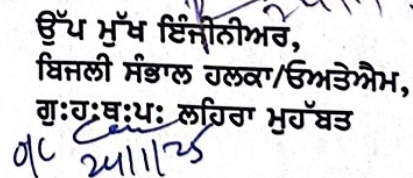 ਉੱਪ ਮੁੱਖ ਇੰਜੀਨੀਅਰ,
ਬਿਜਲੀ ਸੰਭਾਲ ਹਲਕਾ/ਓਅਤੇਐਮ,
ਗੁ:ਹ:ਥ:ਪ: ਲਹਿਰਾ ਮੁਹੱਬਤ
o/c
24/1/25